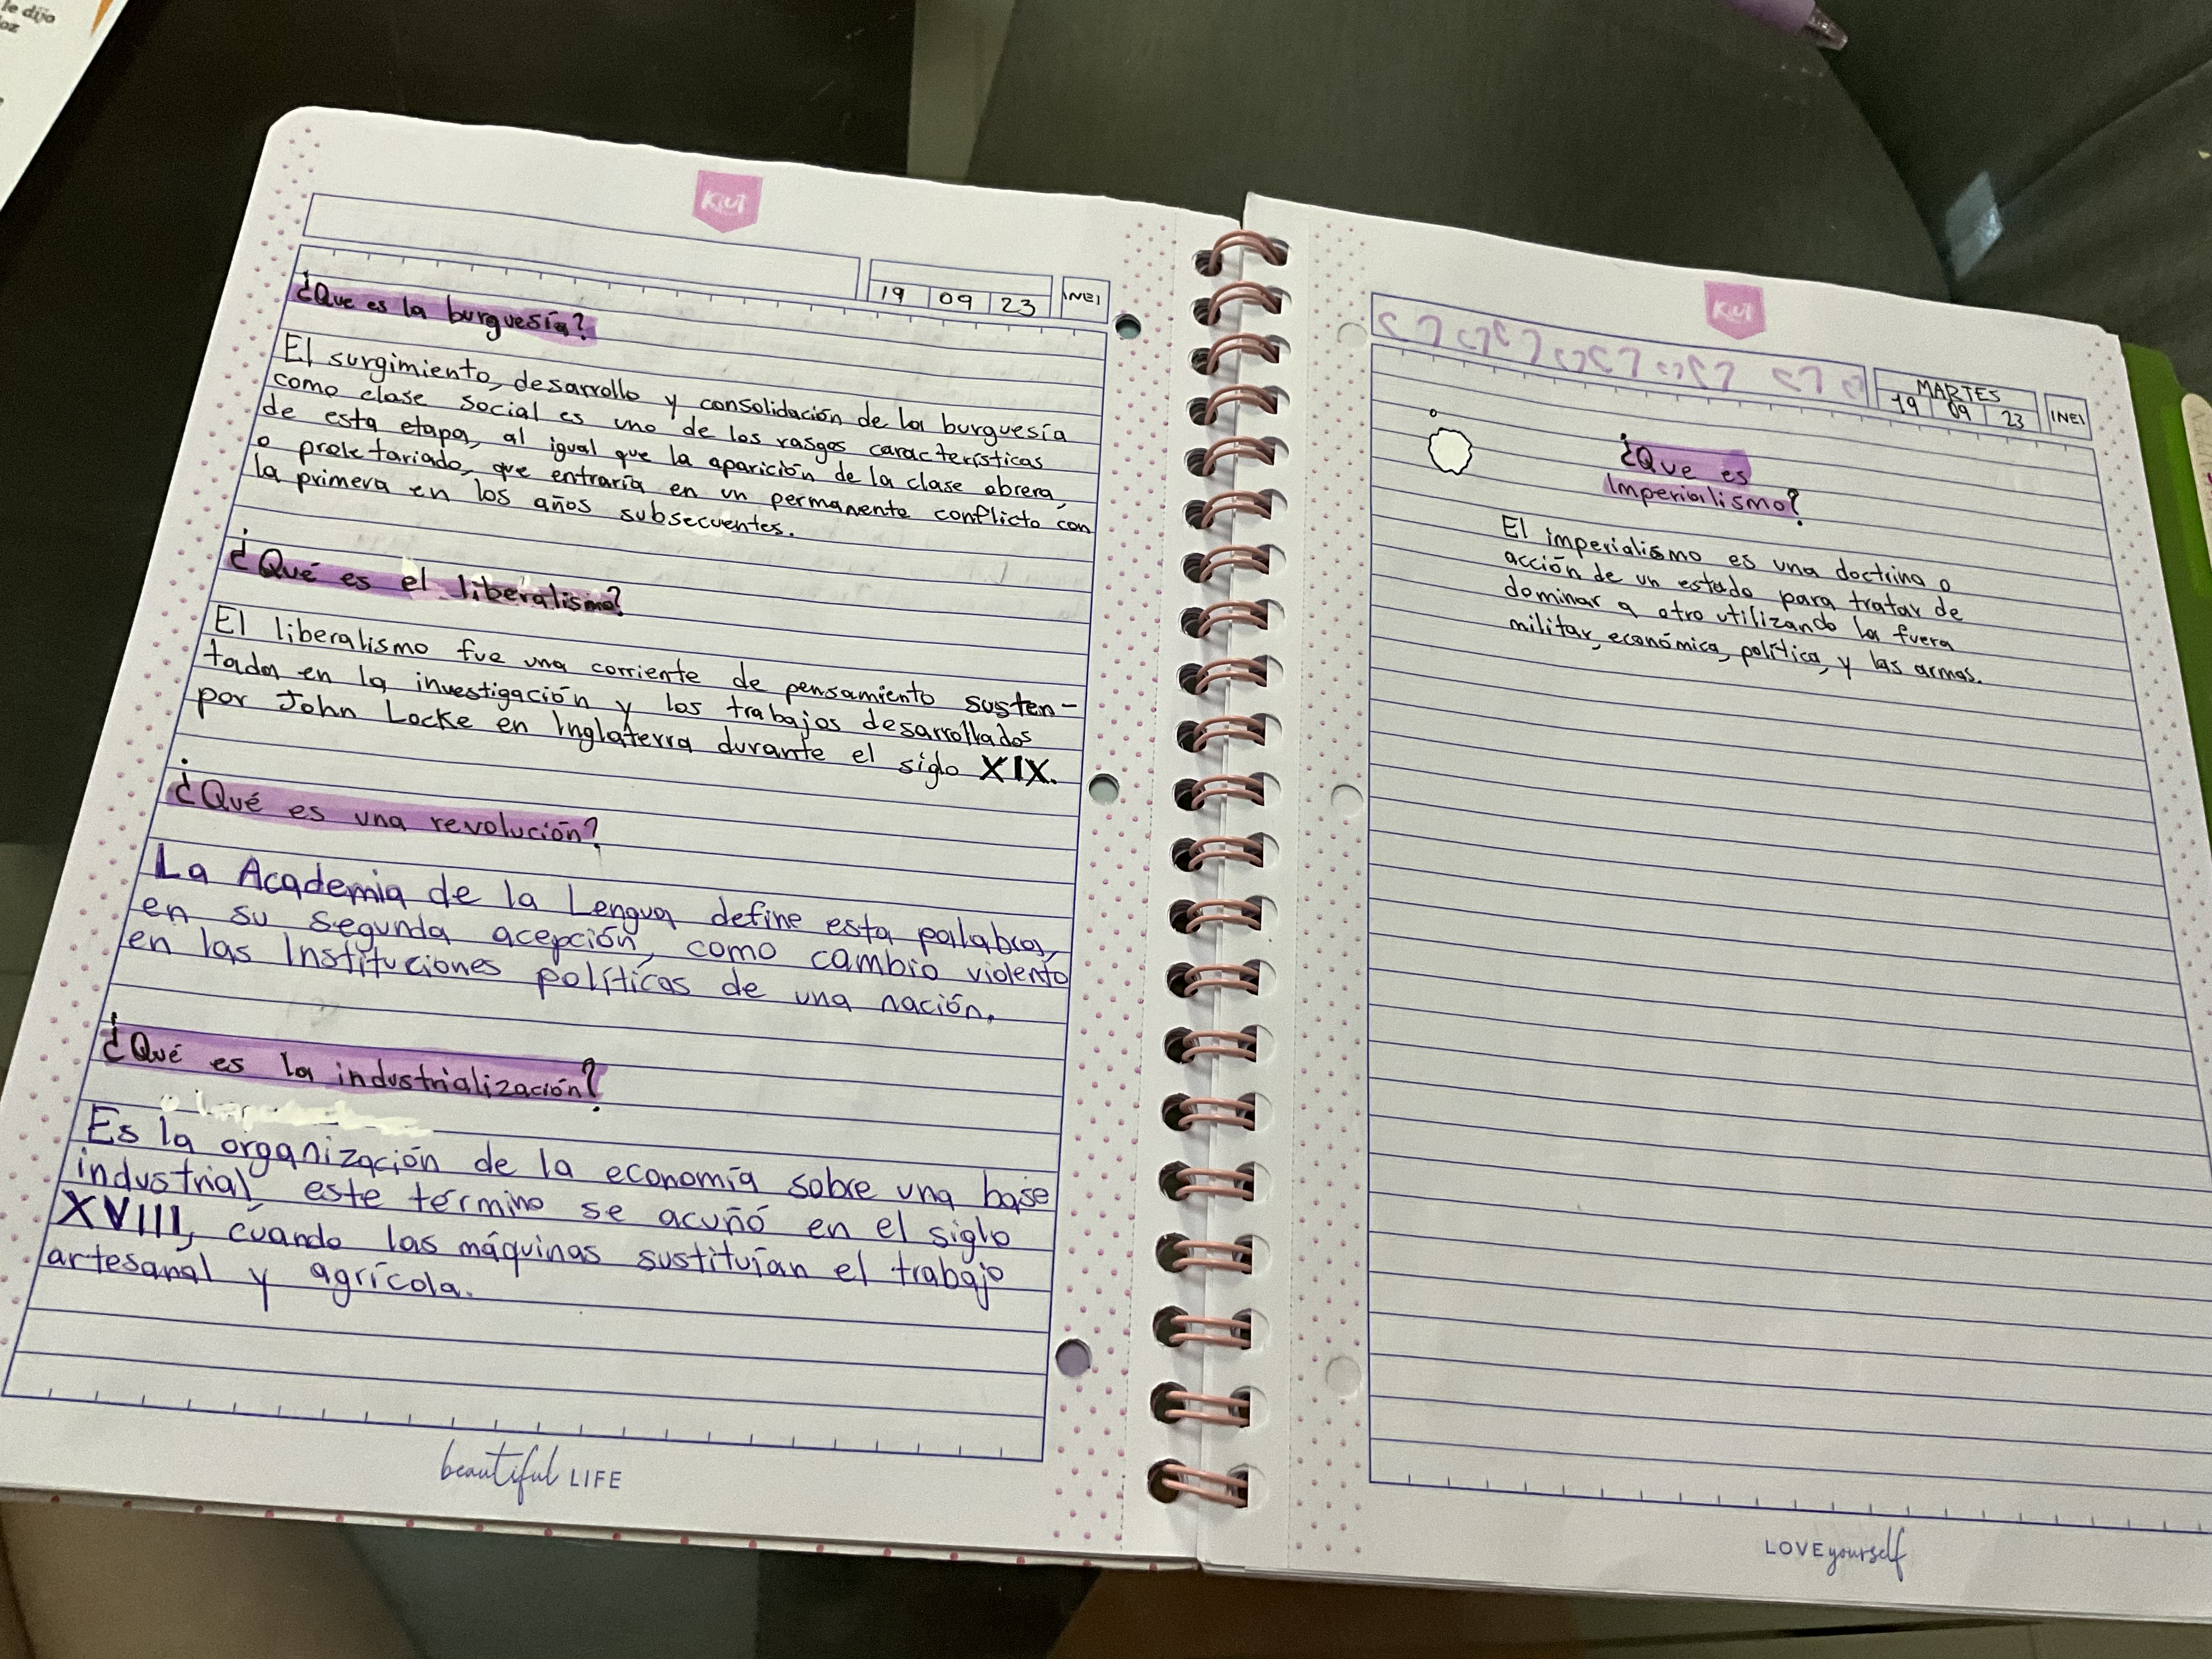 le dijo
oz
KIUT
19 09 23
INEI
¿Que es la burguesía?
El surgimiento, desarrollo y consolidación de la burguesía
como clase social es uno de los rasgos característicos
de esta etapa, al igual que la aparición de la clase obrera,
o proletariado, que entraría en un permanente conflicto con
la primera en los años subsecuentes.
¿Qué es el liberalismo?
El liberalismo fue una corriente de pensamiento susten-
tada en la investigación y los trabajos desarrollados
por John Locke en Inglaterra durante el siglo XIX.
¿Qué es una revolución?
La Academia de la Lengua define esta palabra,
en su segunda acepción, como cambio violento
en las Instituciones políticas de una nación.
¿Qué es la industrialización?
Es la organización de la economía sobre una base
industrial, este término se acuñó en el siglo
XVIII, cuando las máquinas sustituían el trabajo
artesanal y agrícola.
beautiful LIFE
KIUT
MARTES
19 09 23
INEI
¿Que es
Imperialismo?
El imperialismo es una doctrina o
acción de un estado para tratar de
dominar a otro utilizando la fuera
militar, económica, política, y las armas.
LOVE yourself